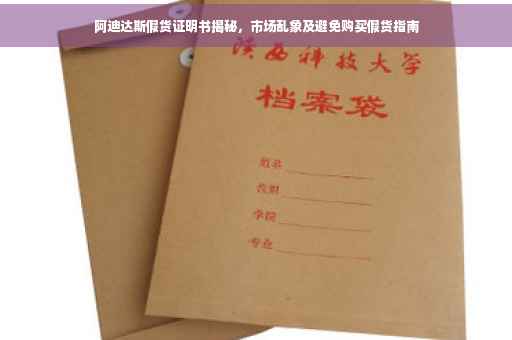 阿迪达斯假货证明书揭秘，市场乱象及避免购买假货指南
陕西科技大学
档案袋
姓名
学院
专业